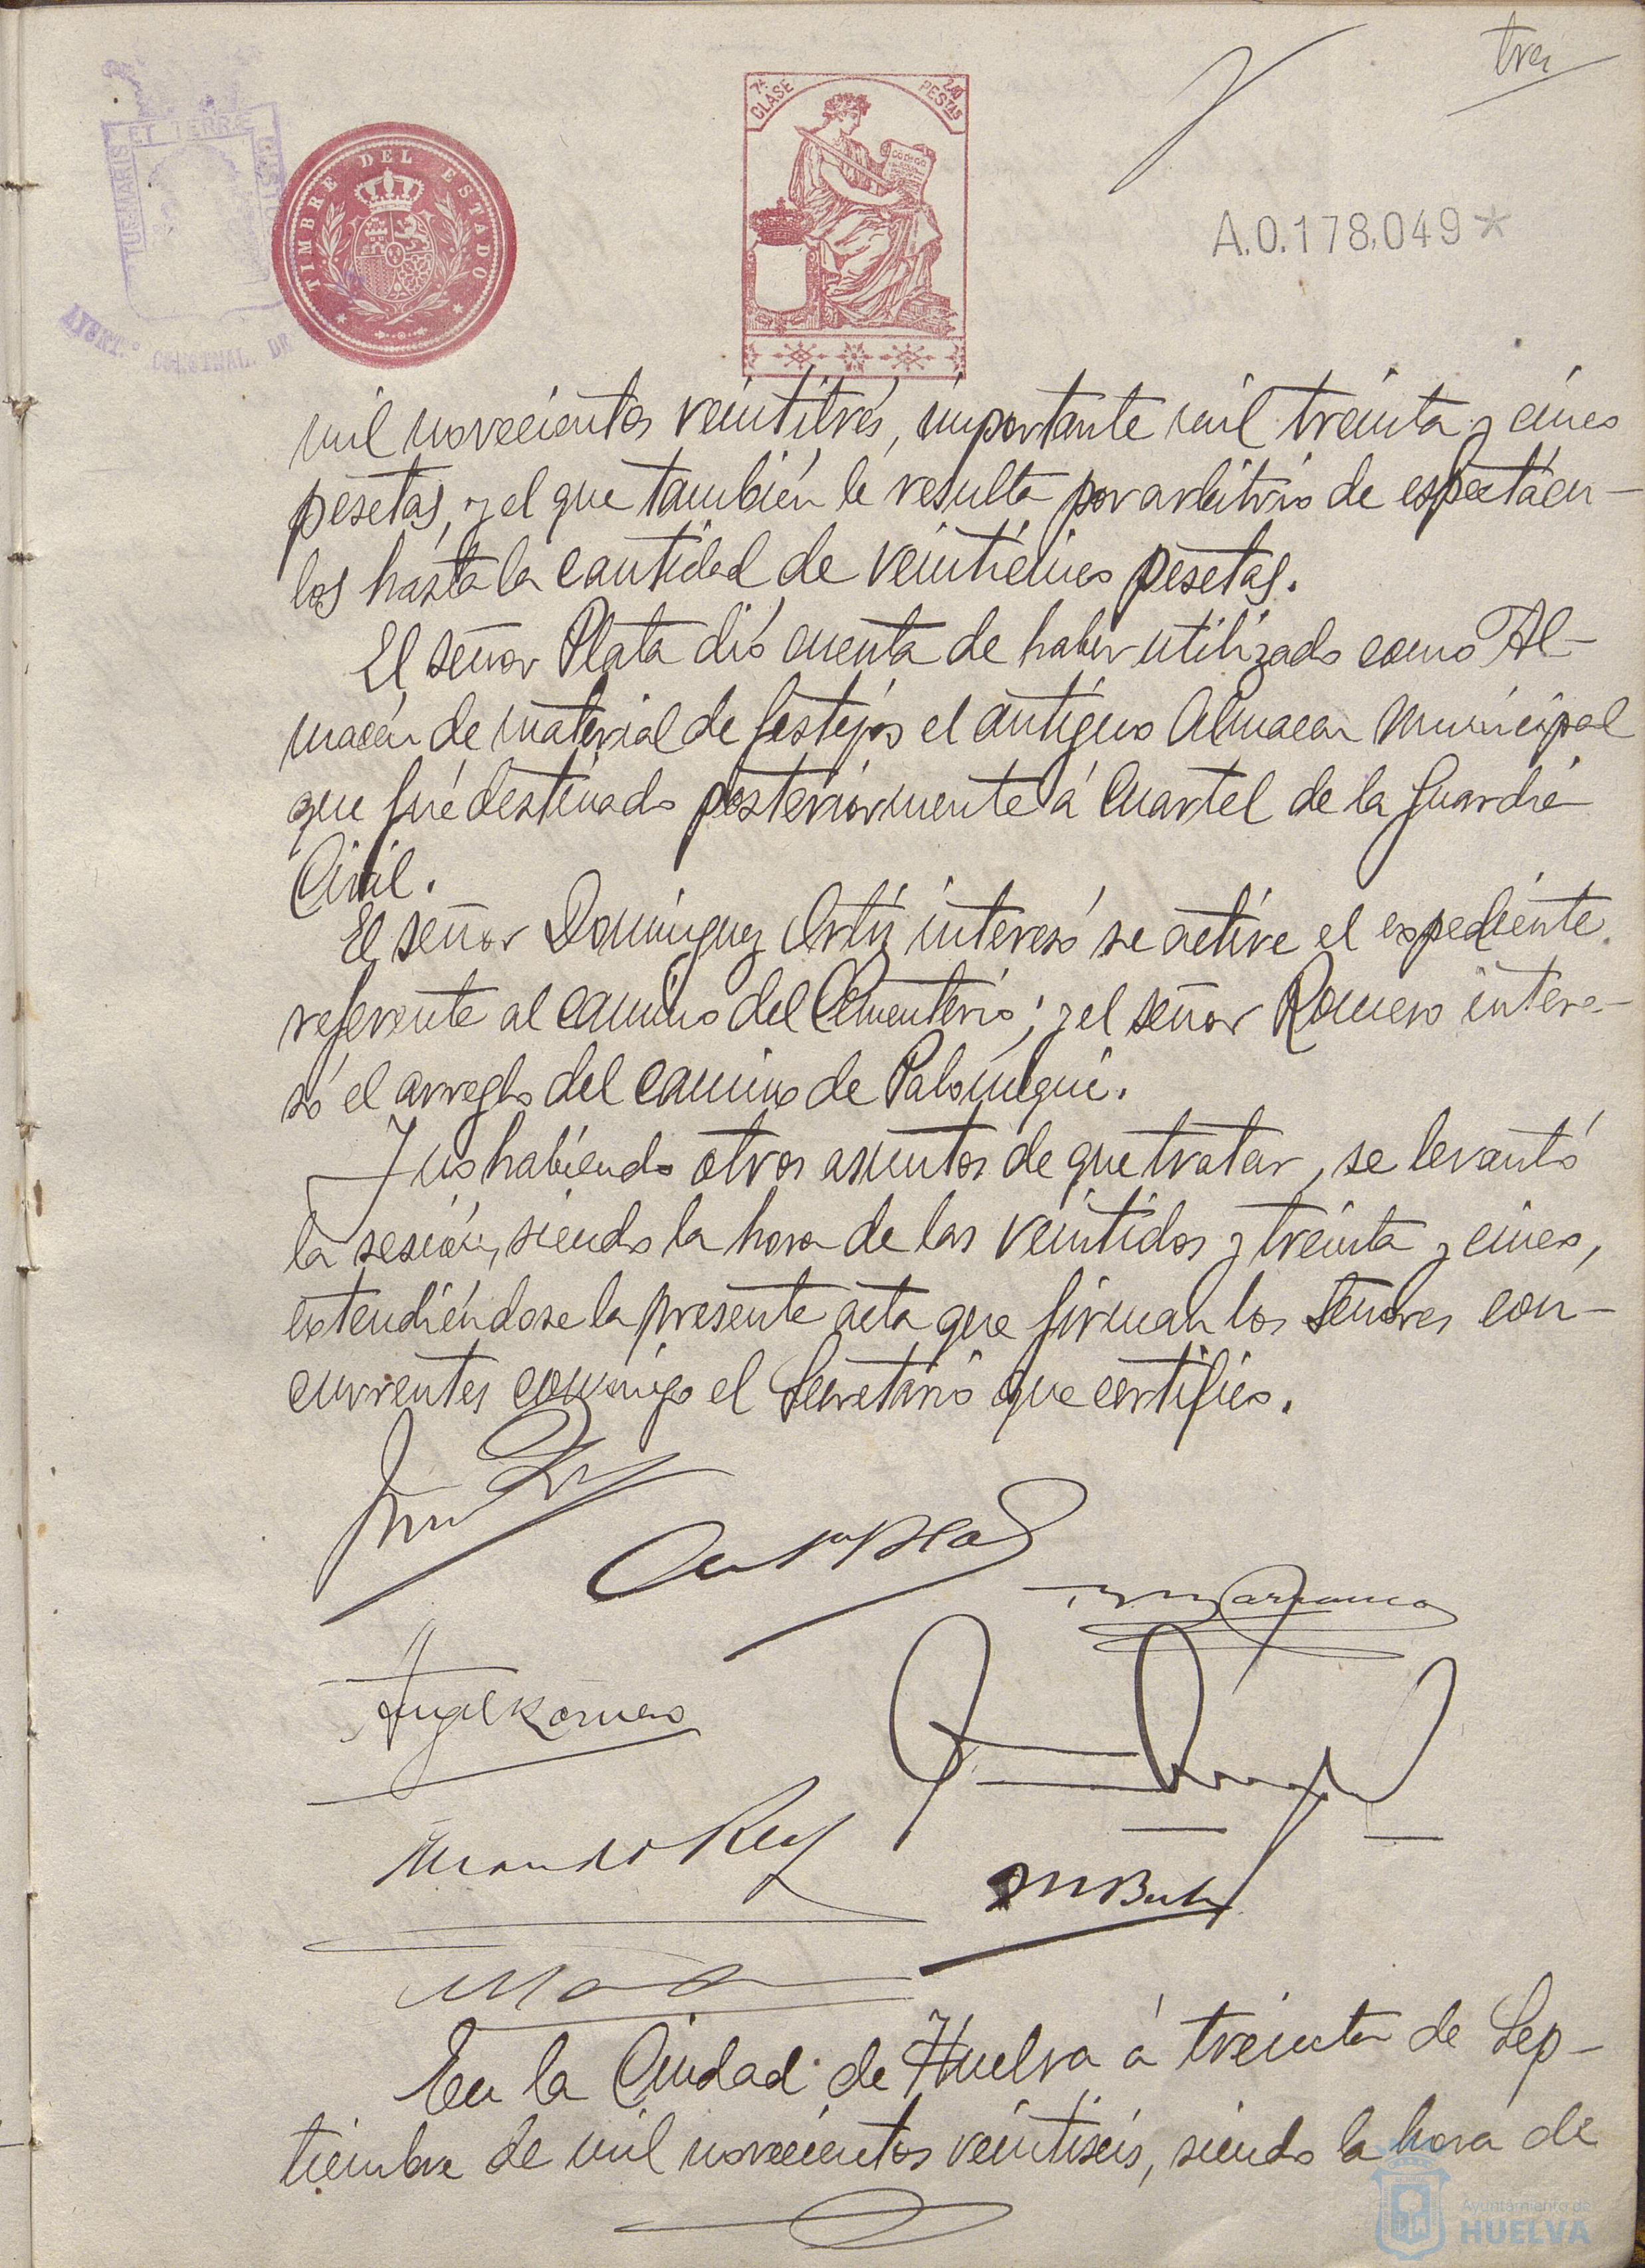 tres
7ª CLASE
2,40 PESTAS
TIMBRE DEL ESTADO
ET TERRÆ
AYUNT.º
DE
A.0.178,049*
mil novecientos veintitrés, importante mil treinta y cinco
pesetas, y el que también le resulta por arbitrio de espectácu-
los hasta la cantidad de veinticinco pesetas.
El señor Plata dió cuenta de haber utilizado como Al-
macén de material de festejos el antiguo Almacen Municipal
que fué destinado posteriormente á Cuartel de la Guardia
Civil.
El señor Dominguez Ortiz interesó se active el expediente
referente al camino del Cementerio; y el señor Romero intere-
só el arreglo del camino de Palomeque.
Y no habiendo otros asuntos de que tratar, se levantó
la sesión, siendo la hora de las veintidos y treinta y cinco,
extendiéndose la presente acta que firman los señores con-
currentes conmigo el Secretario que certifico.
Angel Romero
En la Ciudad de Huelva á treinta de Sep-
tiembre de mil novecientos veintiseis, siendo la hora de
Ayuntamiento de
HUELVA